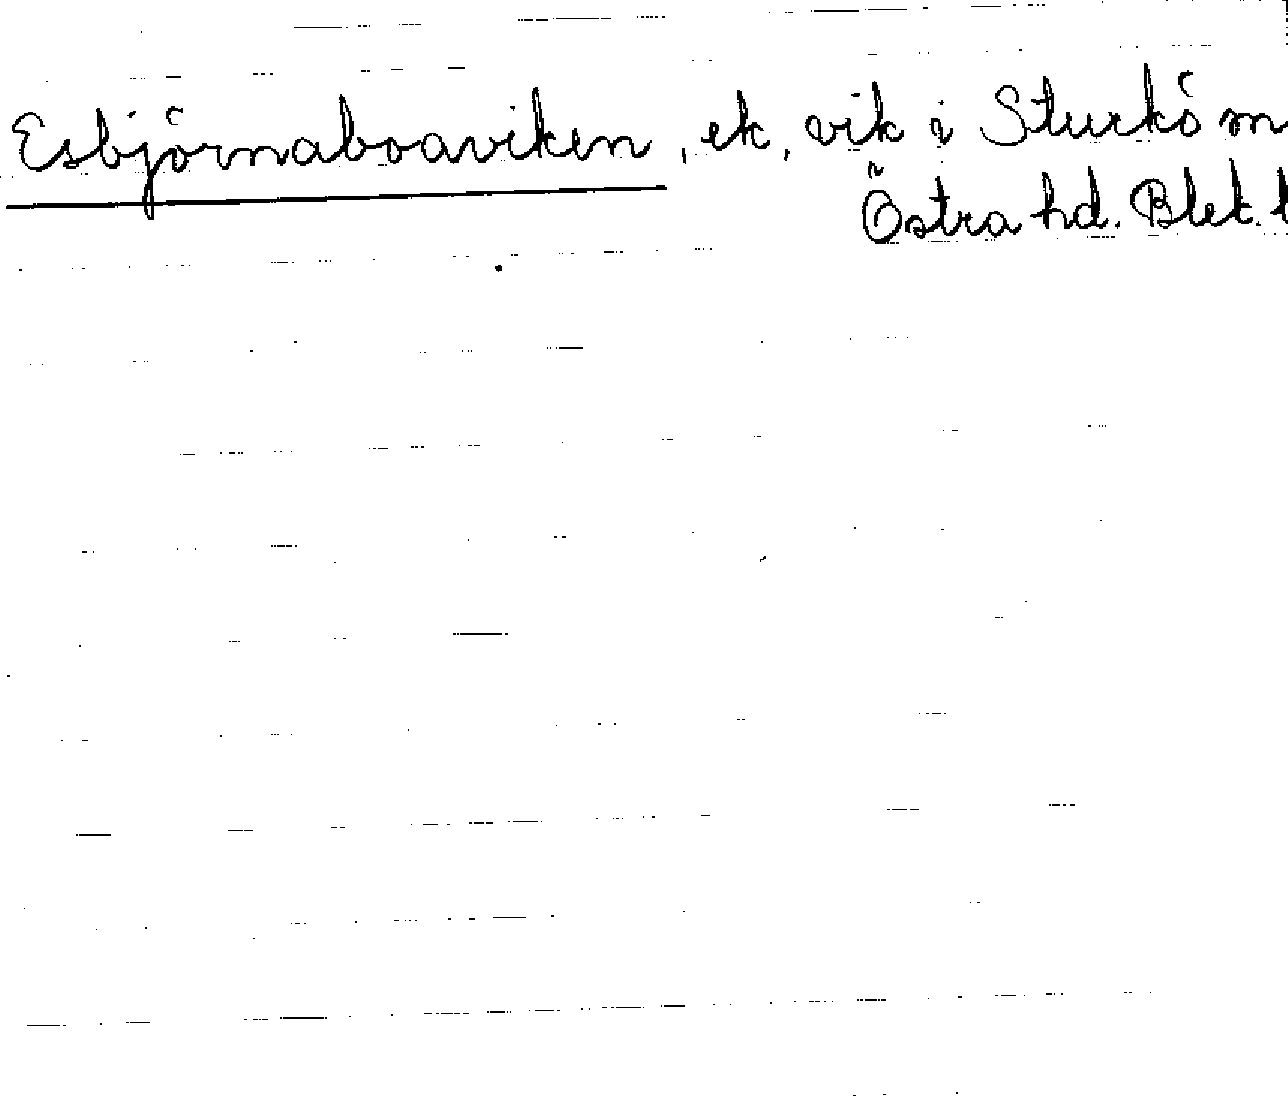 Esbjörnaboaviken, ek, vik i Sturkö
Östra hd. Blek.